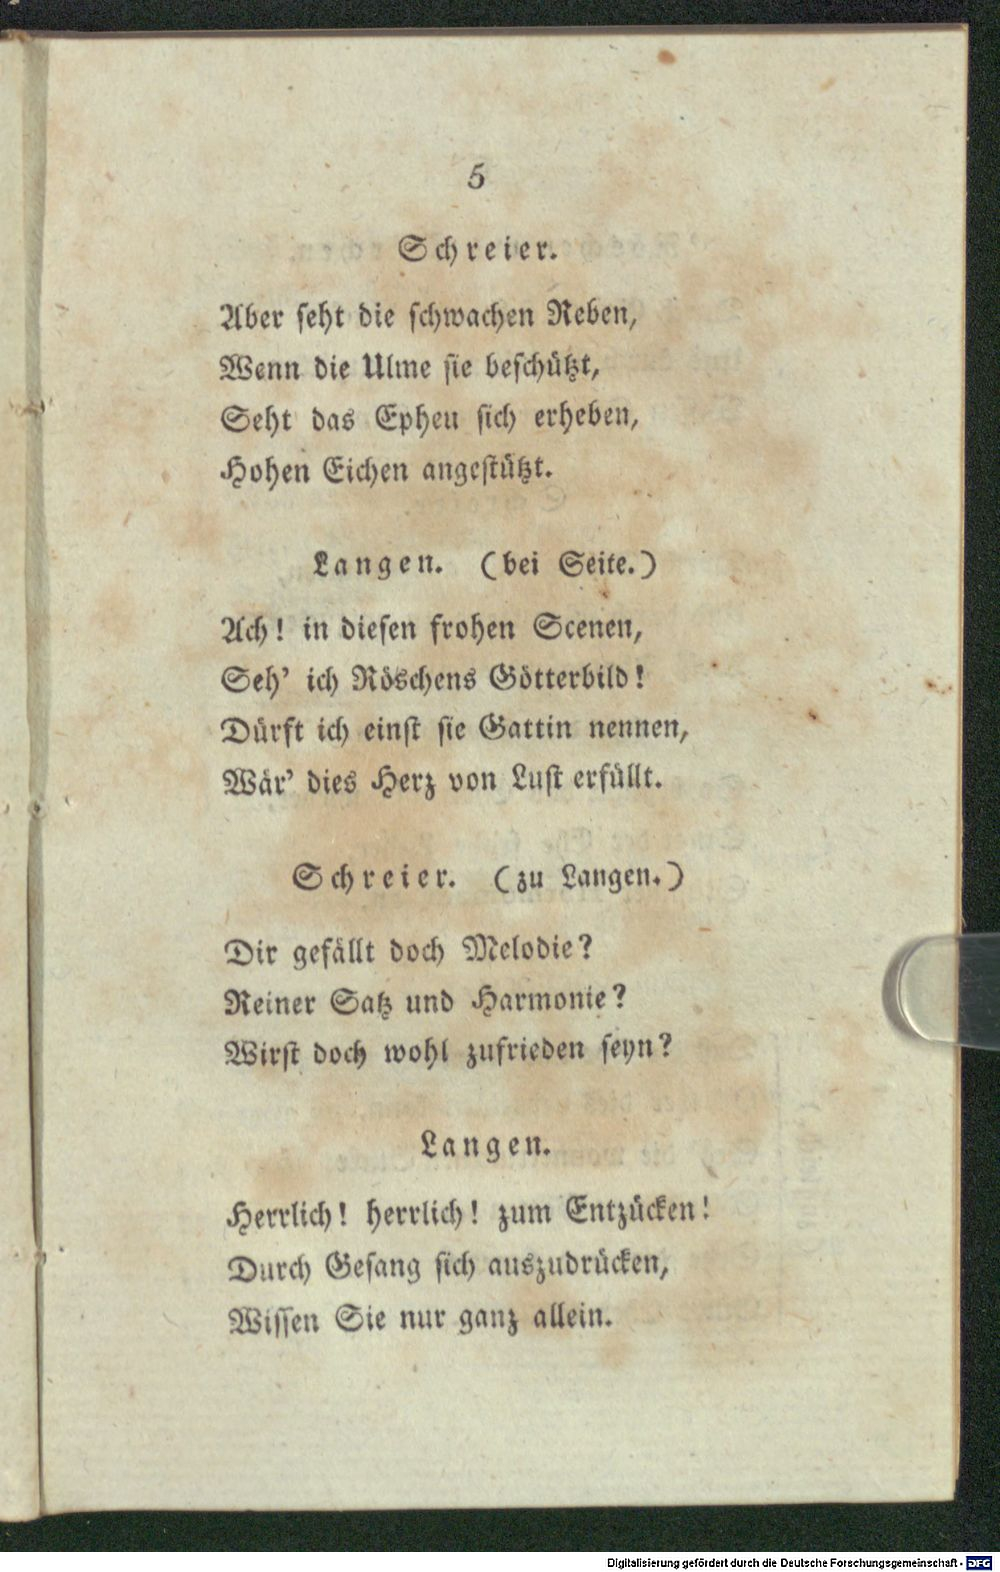 5
Schreier.
Aber seht die schwachen Reben,
Wenn die Ulme sie beschützt,
Seht das Epheu sich erheben,
Hohen Eichen angestützt.
Langen. (bei Seite.)
Ach! in diesen frohen Scenen,
Seh' ich Röschens Götterbild!
Dürft ich einst sie Gattin nennen,
Wär' dies Herz von Lust erfüllt.
Schreier. (zu Langen.)
Dir gefällt doch Melodie?
Reiner Satz und Harmonie?
Wirst doch wohl zufrieden seyn?
Langen.
Herrlich! herrlich! zum Entzücken!
Durch Gesang sich auszudrücken,
Wissen Sie nur ganz allein.
Digitalisierung gefördert durch die Deutsche Forschungsgemeinschaft - DFG